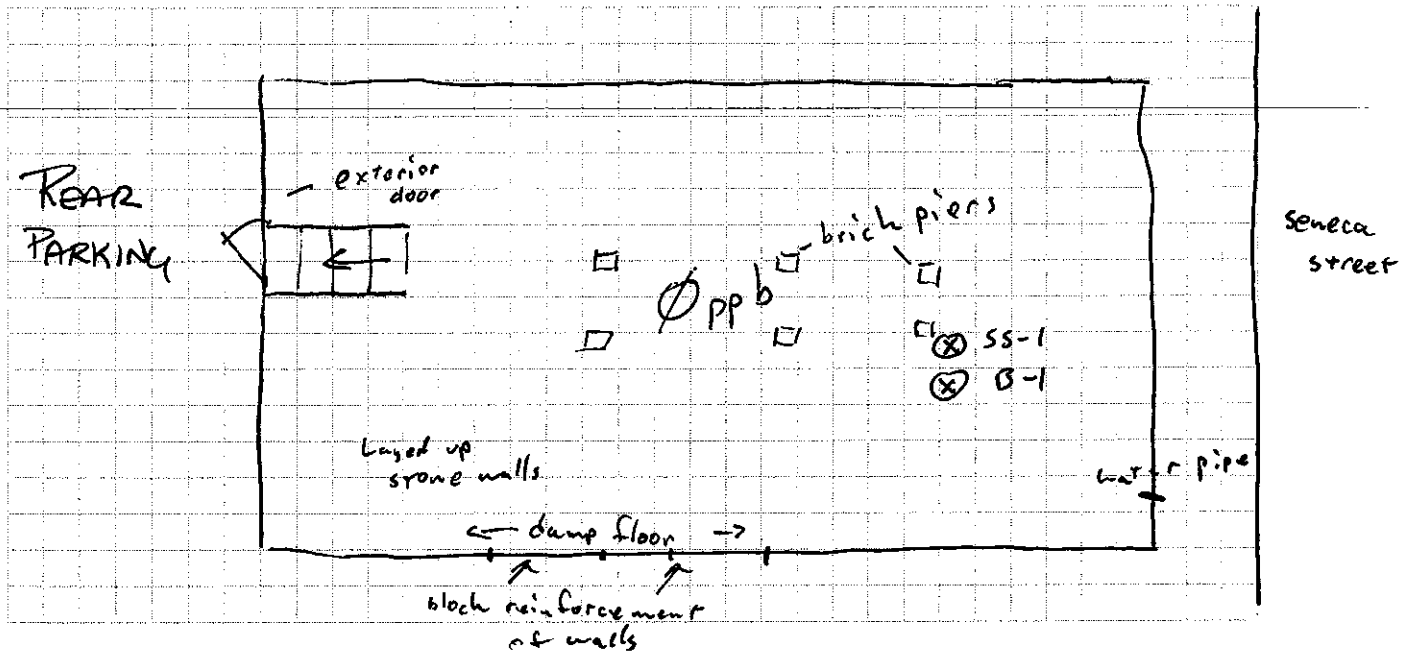 REAR
PARKING
exterior
door
brick piers
Seneca
street
Ø ppb
SS-1
B-1
Layed up
stone walls
water pipe
← damp floor →
block reinforcement
of walls